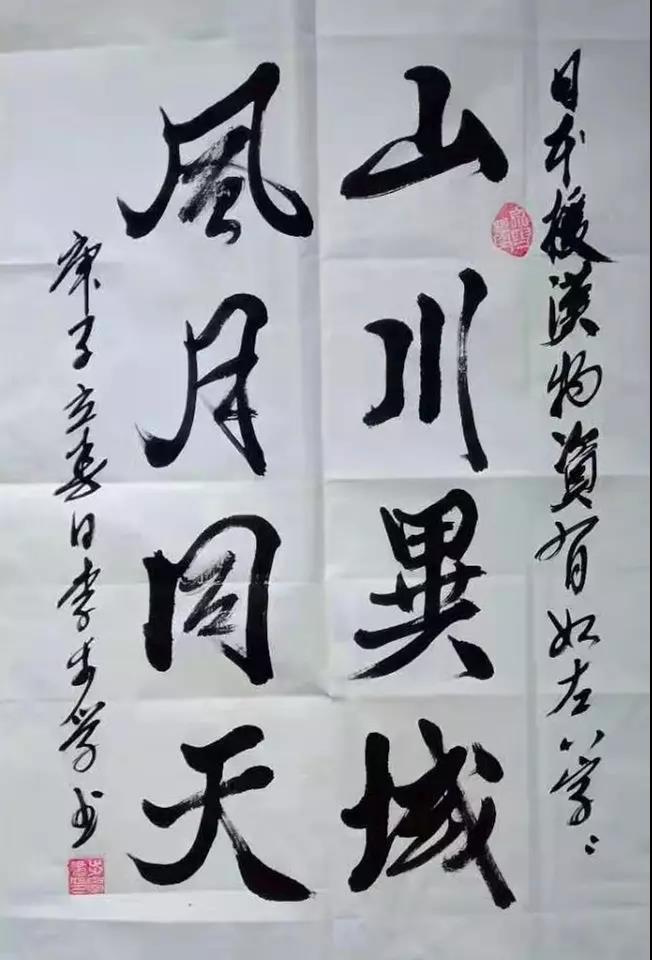 日本援漢物資有如左八字
山川異域
風月同天
庚子立春日李步学书